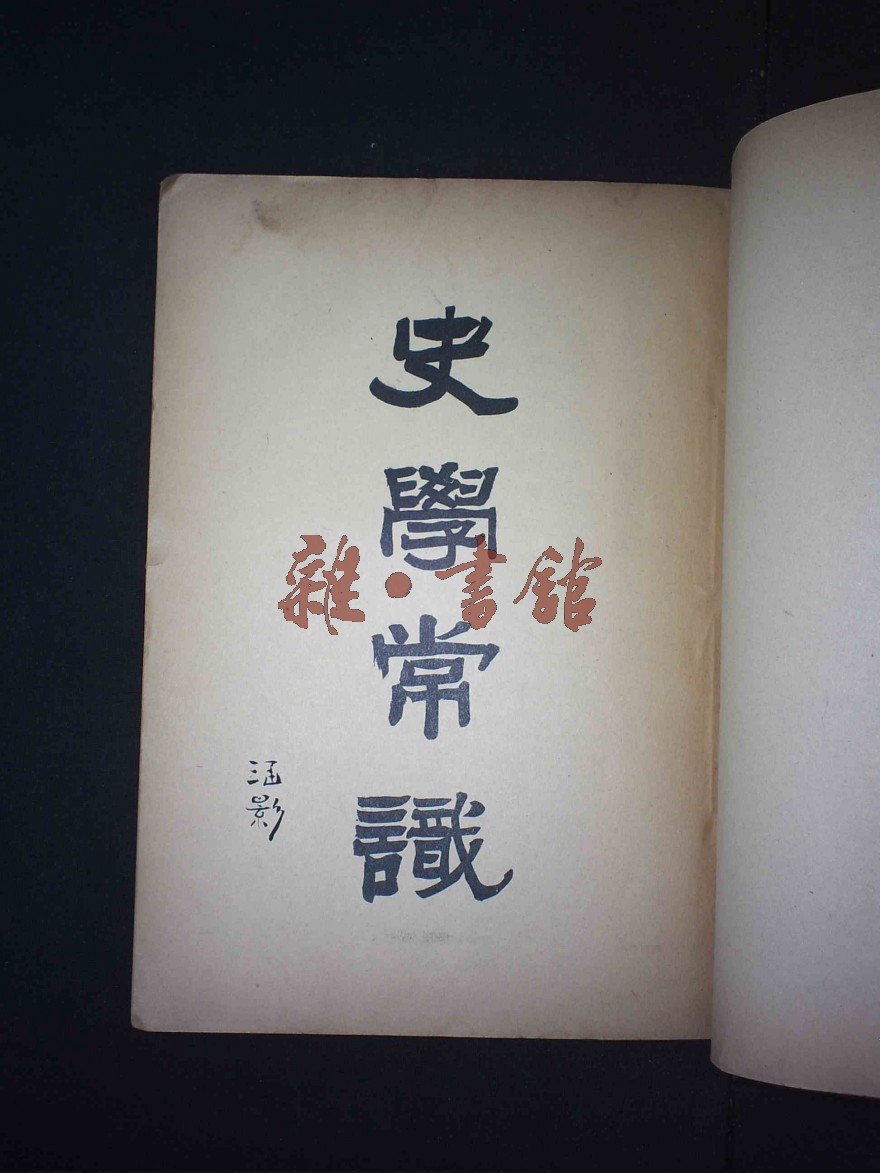 史學常識
涵影
雜·書館